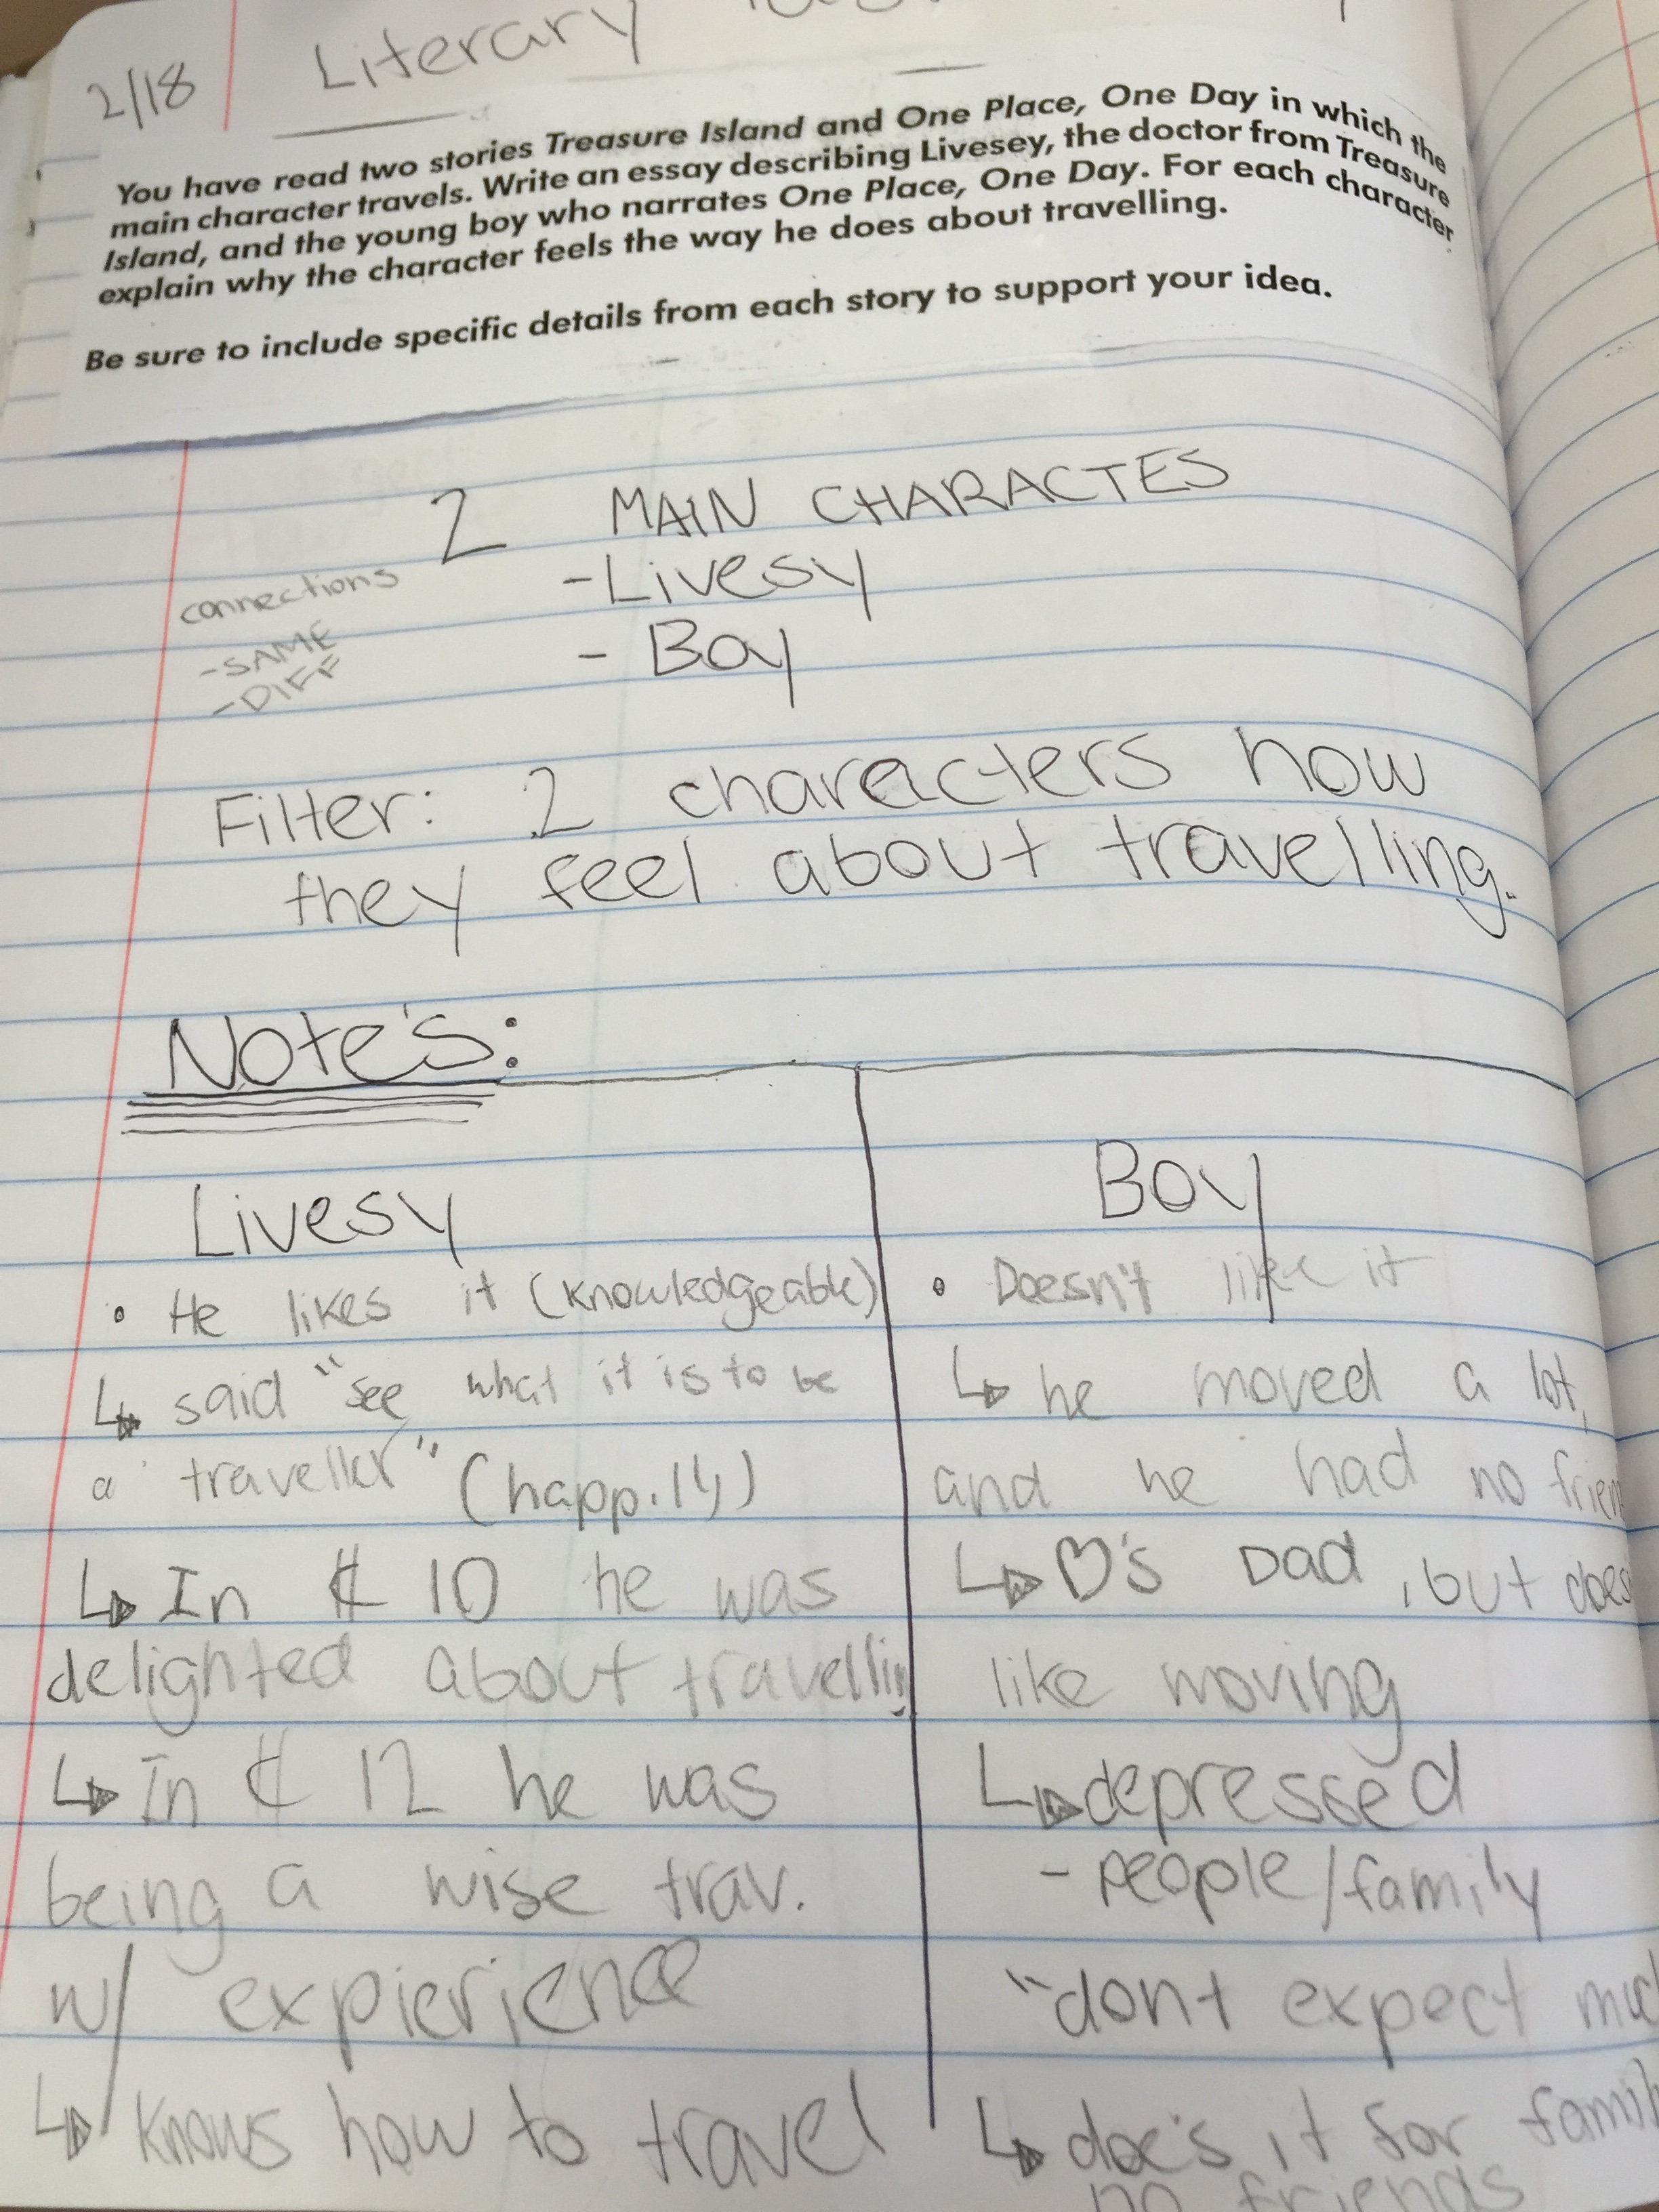 2/18 Literary
You have read two stories Treasure Island and One Place, One Day in which the
main character travels. Write an essay describing Livesey, the doctor from Treasure
Island, and the young boy who narrates One Place, One Day. For each character
explain why the character feels the way he does about travelling.
Be sure to include specific details from each story to support your idea.
2 MAIN CHARACTES
-Livesy
- Boy
connections
-SAME
-DIFF
Filter: 2 characters how
they feel about travelling.
Note's:
Livesy
• He likes it (knowledgeable)
↳ said "see what it is to be
a traveller" (happ.14)
↳ In ₵ 10 he was
delighted about travellin
↳ In ₵ 12 he was
being a wise trav.
w/ expierience
↳ knows how to travel
Boy
• Doesn't like it
↳ he moved a lot,
and he had no frien
↳ ♡'s Dad, but does
like moving
↳ depressed
- people/family
"dont expect muc
↳ doe's it for famil
no friends